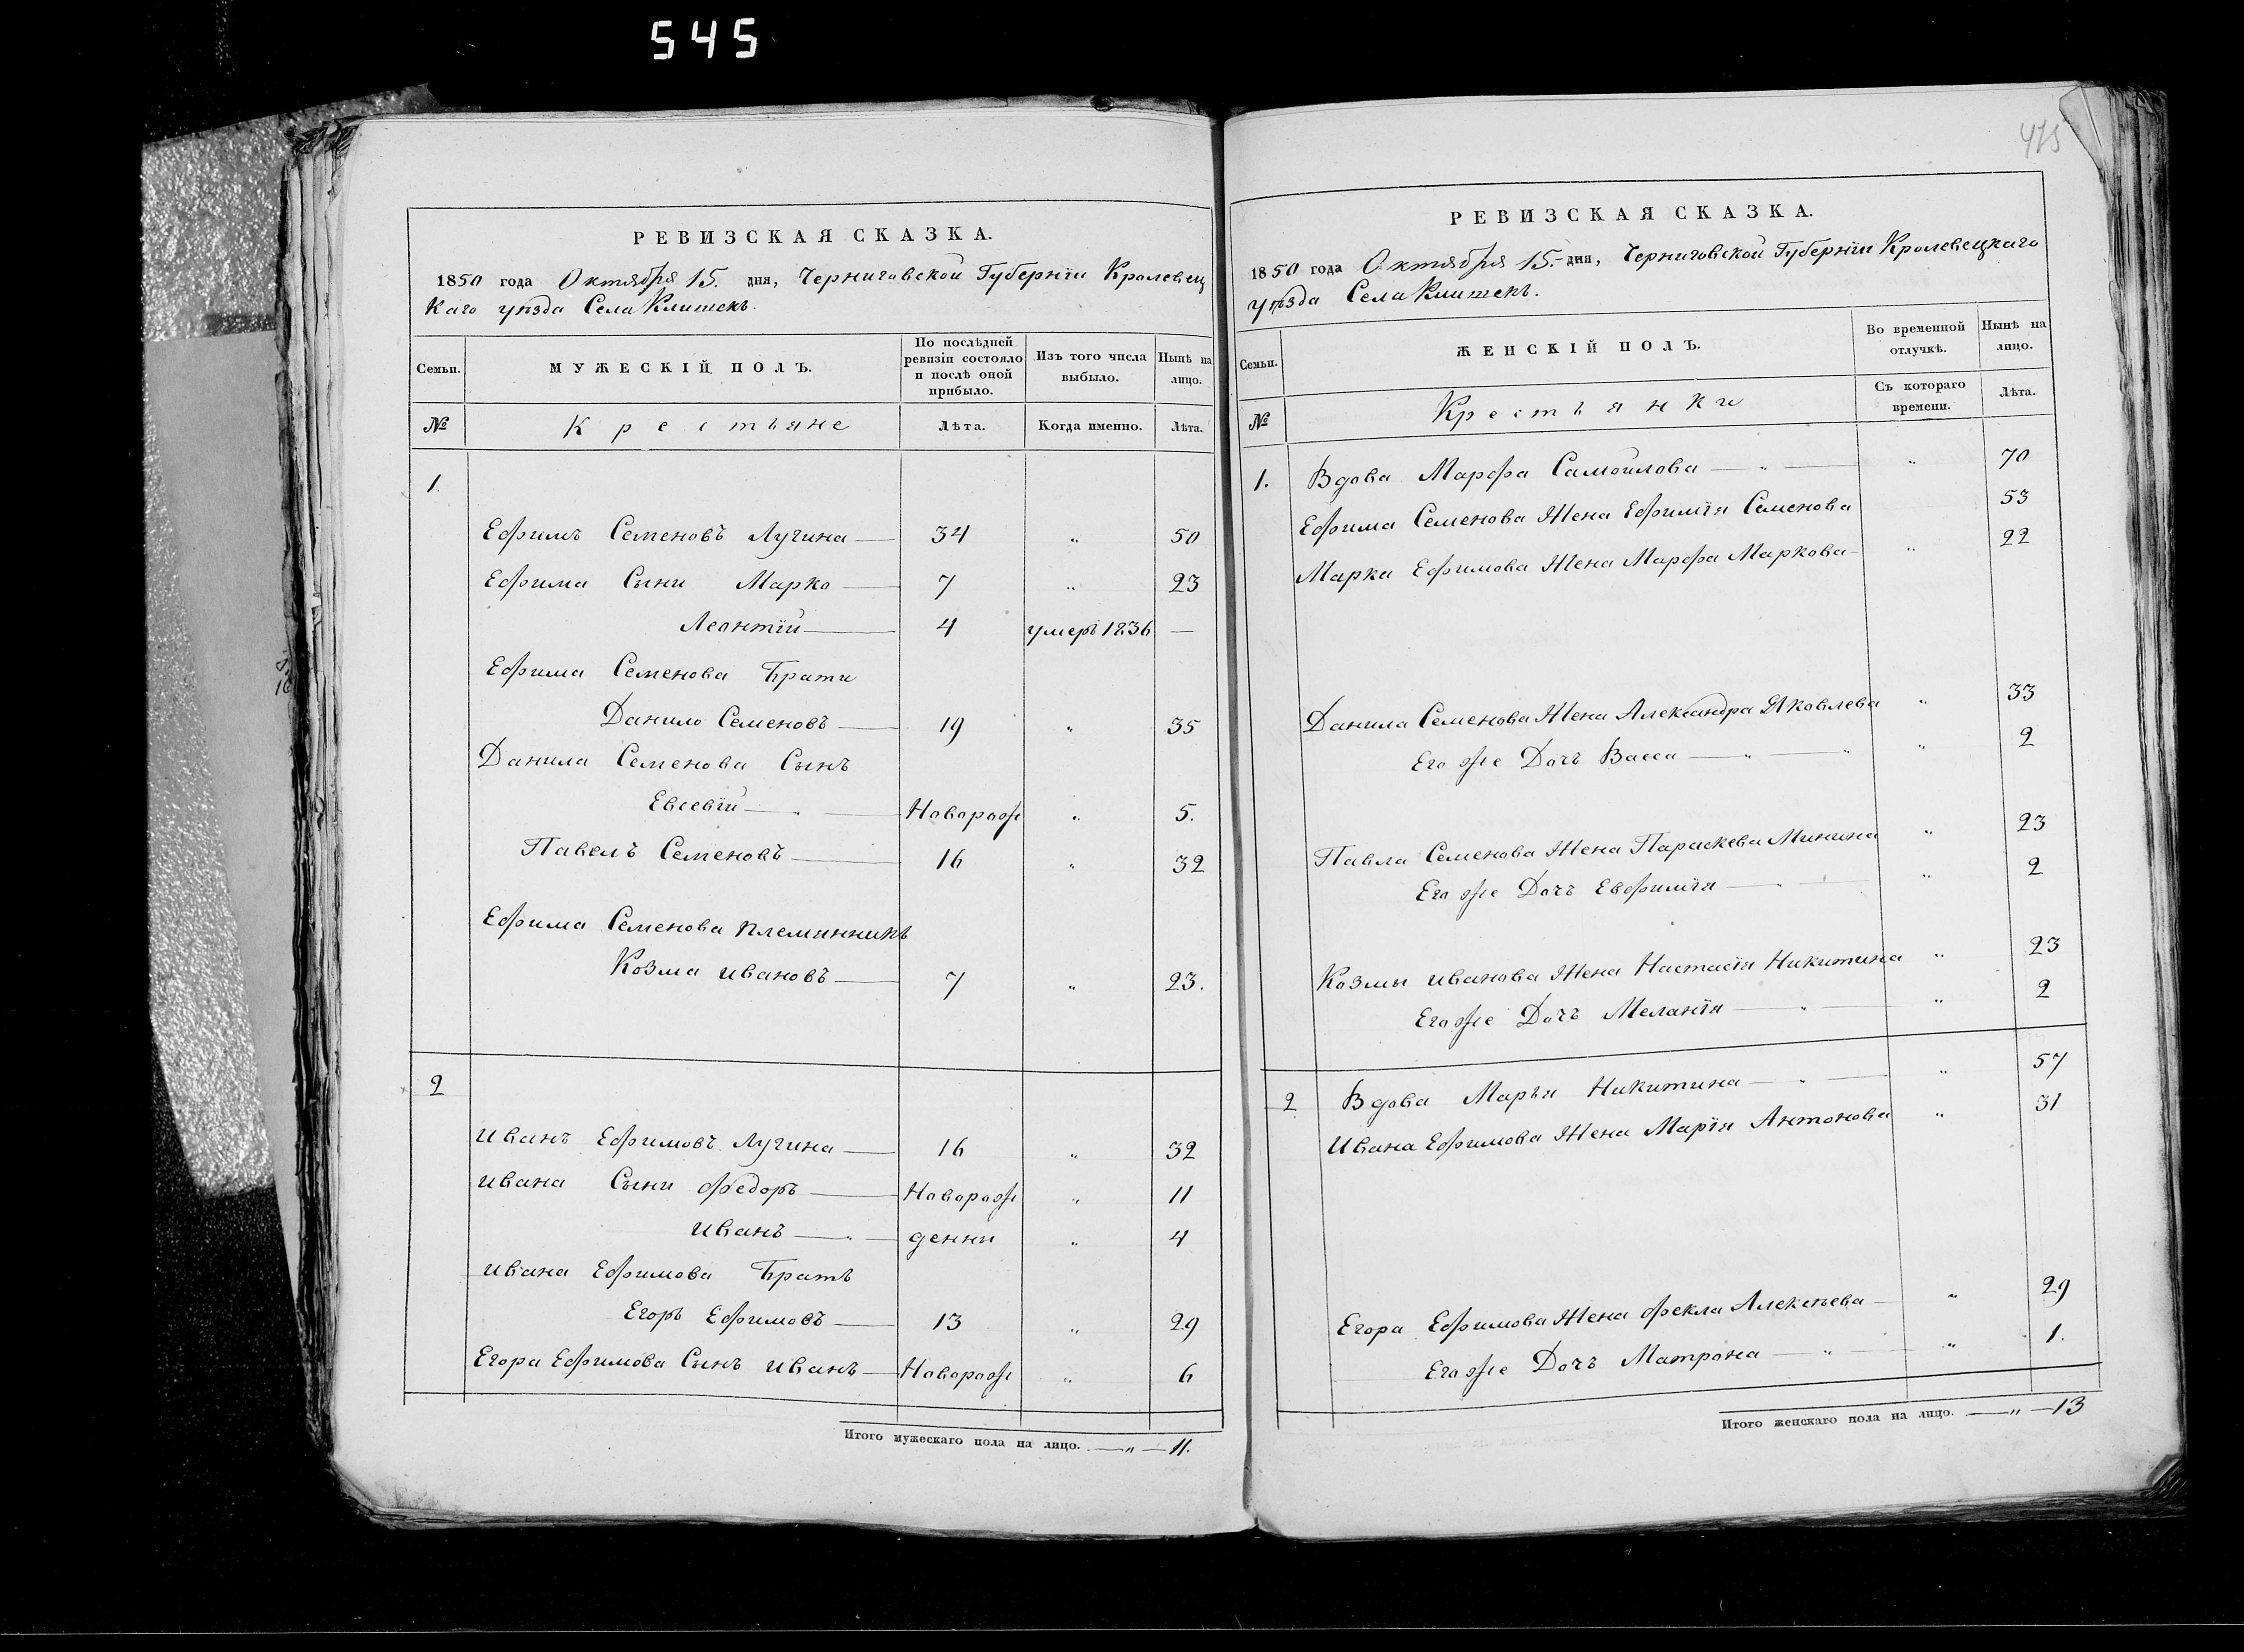 545
415
РЕВИЗСКАЯ СКАЗКА.
1850 года Октября 15. дня, Черниговской Губернїи Кролевец
каго уѣзда Села Клишекъ.
Семьи.
МУЖЕСКІЙ ПОЛЪ.
По послѣдней ревизіи состояло и послѣ оной прибыло.
Изъ того числа выбыло.
Нынѣ на лицо.
№ Крестьяне Лѣта. Когда именно. Лѣта.
1.
Ефимъ Семеновъ Лучина — 34 " 50
Ефима Сыни Марко — 7 " 23
Леонтїй — 4 умеръ 1836 —
Ефима Семенова Брати
Данило Семеновъ — 19 " 35
Данила Семенова Сынъ
Евсевїй — " — Новорож " 5.
Павелъ Семеновъ — 16 " 32
Ефима Семенова племянникъ
Козма Ивановъ — 7 " 23.
2
Иванъ Ефимовъ Лучина — 16 " 32
Ивана Сыни Федоръ — Новорож " 11
Иванъ — " — денни " 4
Ивана Ефимова Братъ
Егоръ Ефимовъ — 13 " 29
Егора Ефимова Сынъ Иванъ — Новорож " 6
Итого мужескаго пола на лицо. — " — 11.
РЕВИЗСКАЯ СКАЗКА.
1850 года Октября 15.- дня, Черниговской Губернїи Кролевецкаго
уѣзда Села Клишекъ.
Семьи.
ЖЕНСКІЙ ПОЛЪ.
Во временной отлучкѣ.
Нынѣ на лицо.
№ Крестьянки
Съ котораго времени.
Лѣта.
1. Вдова Марфа Самойлова — " — " 70
Ефима Семенова Жена Ефимїя Семенова 53
Марка Ефимова Жена Марфа Маркова - " 22
Данила Семенова Жена Александра Яковлева " 33
Его же Дочъ Васса — " — " " 2
Павла Семенова Жена Параскева Минина " 23
Его же Дочъ Евфимїя — " — " 2
Козмы Иванова Жена Настасїя Никитина " 23
Его же Дочъ Меланїя — " — " 2
2 Вдова Марья Никитина — " — " 57
Ивана Ефимова Жена Марїя Антонова " 31
Егора Ефимова Жена Фекла Алексѣева - " 29
Его же Дочъ Матрона — " — " 1.
Итого женскаго пола на лицо. — " — 13